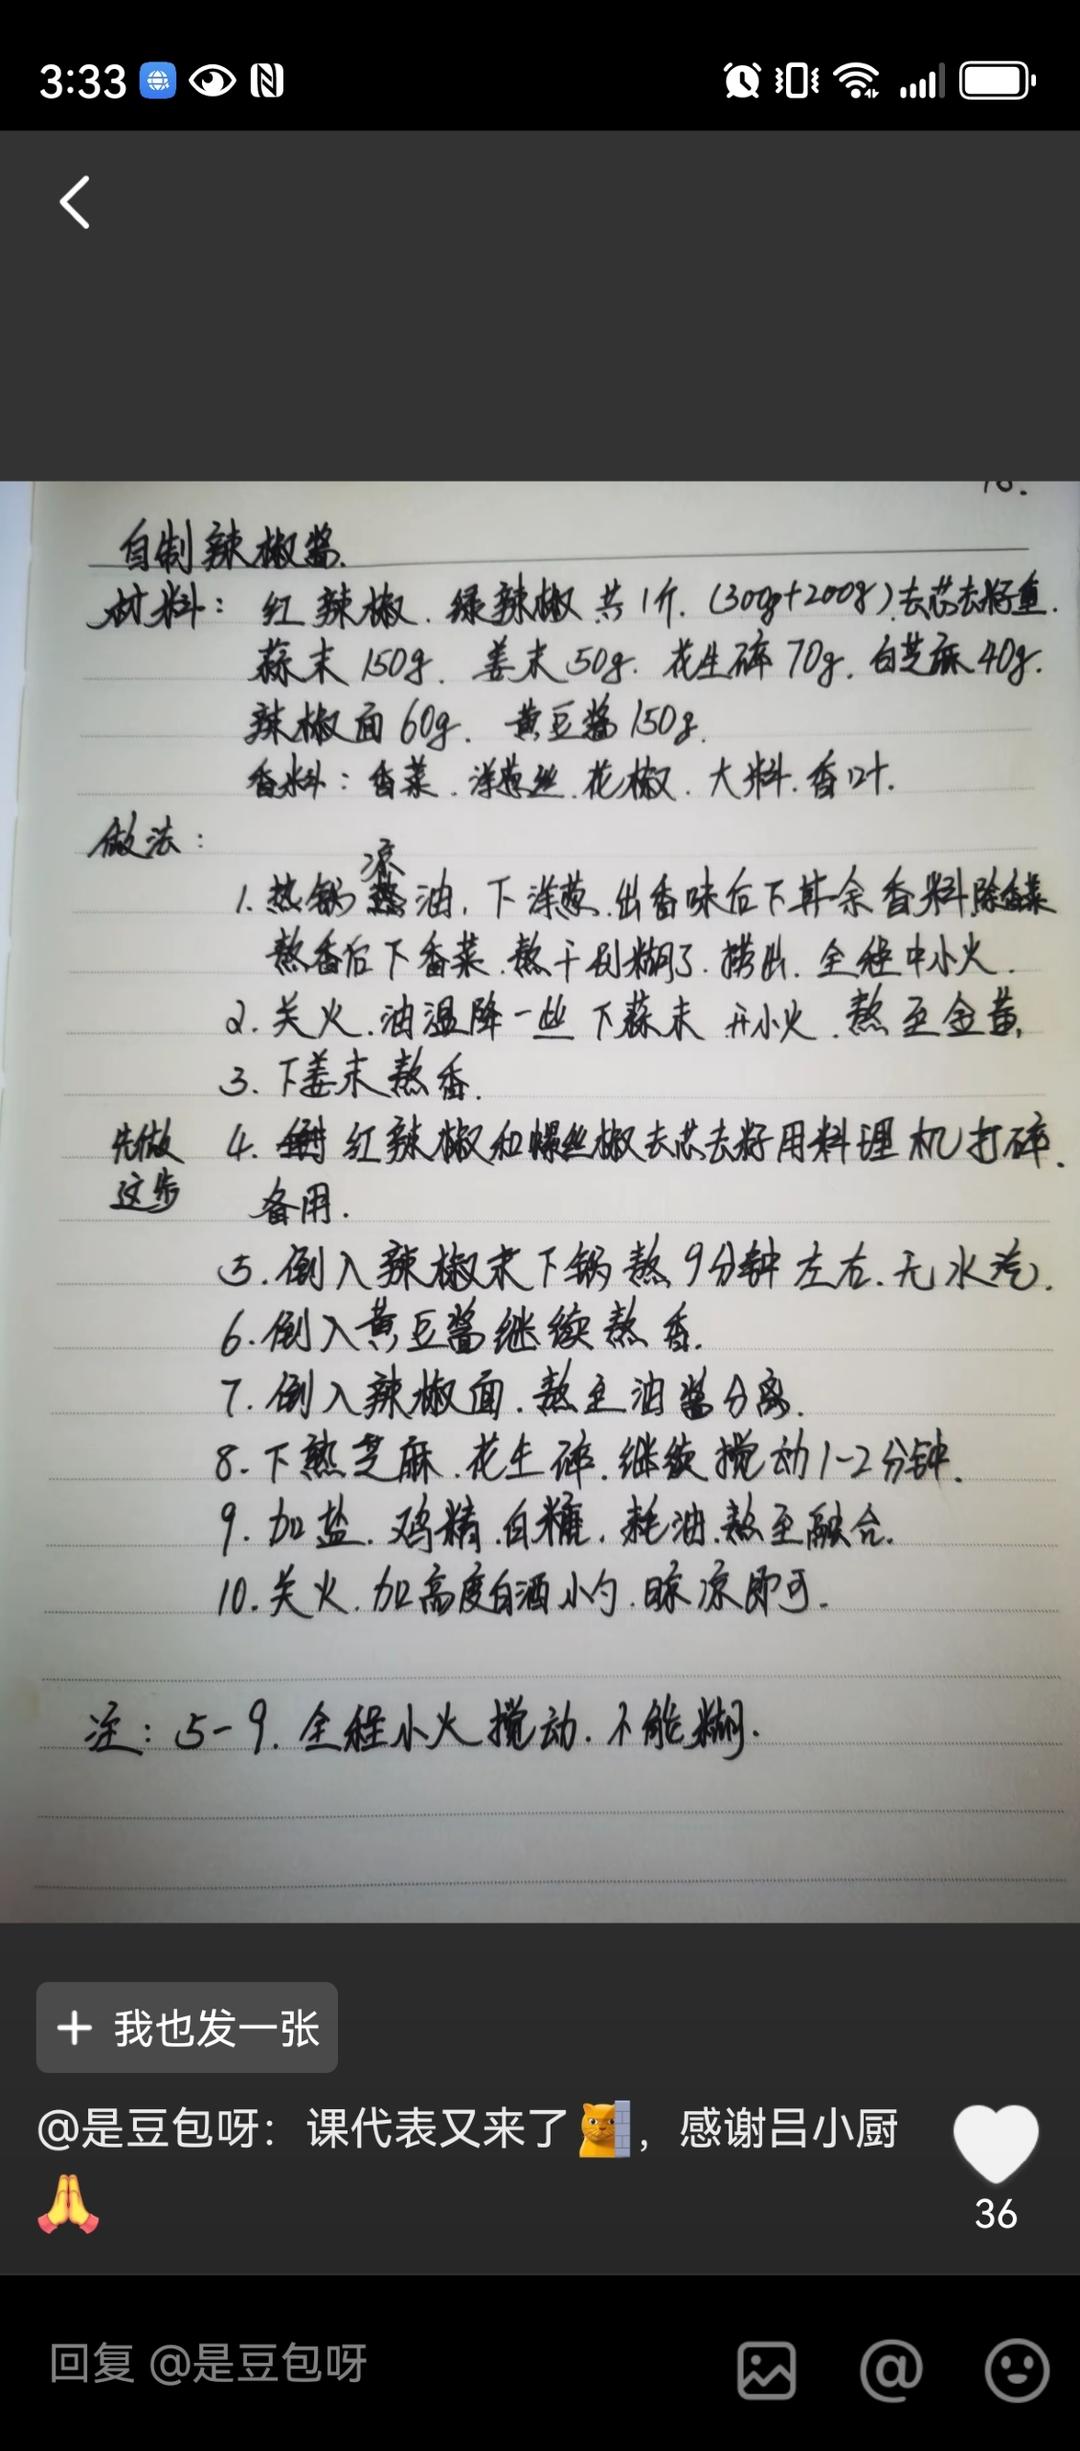 3:33
16.
自制辣椒酱.
材料: 红辣椒.绿辣椒共1斤.(300g+200g)去芯去籽重.
蒜末150g. 姜末50g. 花生碎70g. 白芝麻40g.
辣椒面60g. 黄豆酱150g.
香料: 香菜.洋葱丝.花椒.大料.香叶.
做法:
凉
1.热锅油,下洋葱.出香味后下其余香料除香菜
熬香后下香菜.熬干别糊了.捞出.全程中小火.
2.关火.油温降一些下蒜末 开小火.熬至金黄,
3.下姜末熬香.
先做 4. 红辣椒和螺丝椒去芯去籽用料理机打碎.
这步 备用.
5.倒入辣椒末下锅熬9分钟左右.无水汽.
6.倒入黄豆酱继续熬香.
7.倒入辣椒面.熬至油酱分离.
8.下熟芝麻.花生碎.继续搅动1-2分钟.
9.加盐.鸡精.白糖.耗油.熬至融合.
10.关火.加高度白酒小勺.晾凉即可.
注: 5-9.全程小火搅动.不能糊.
+ 我也发一张
@是豆包呀：课代表又来了，感谢吕小厨
🙏
36
回复 @是豆包呀